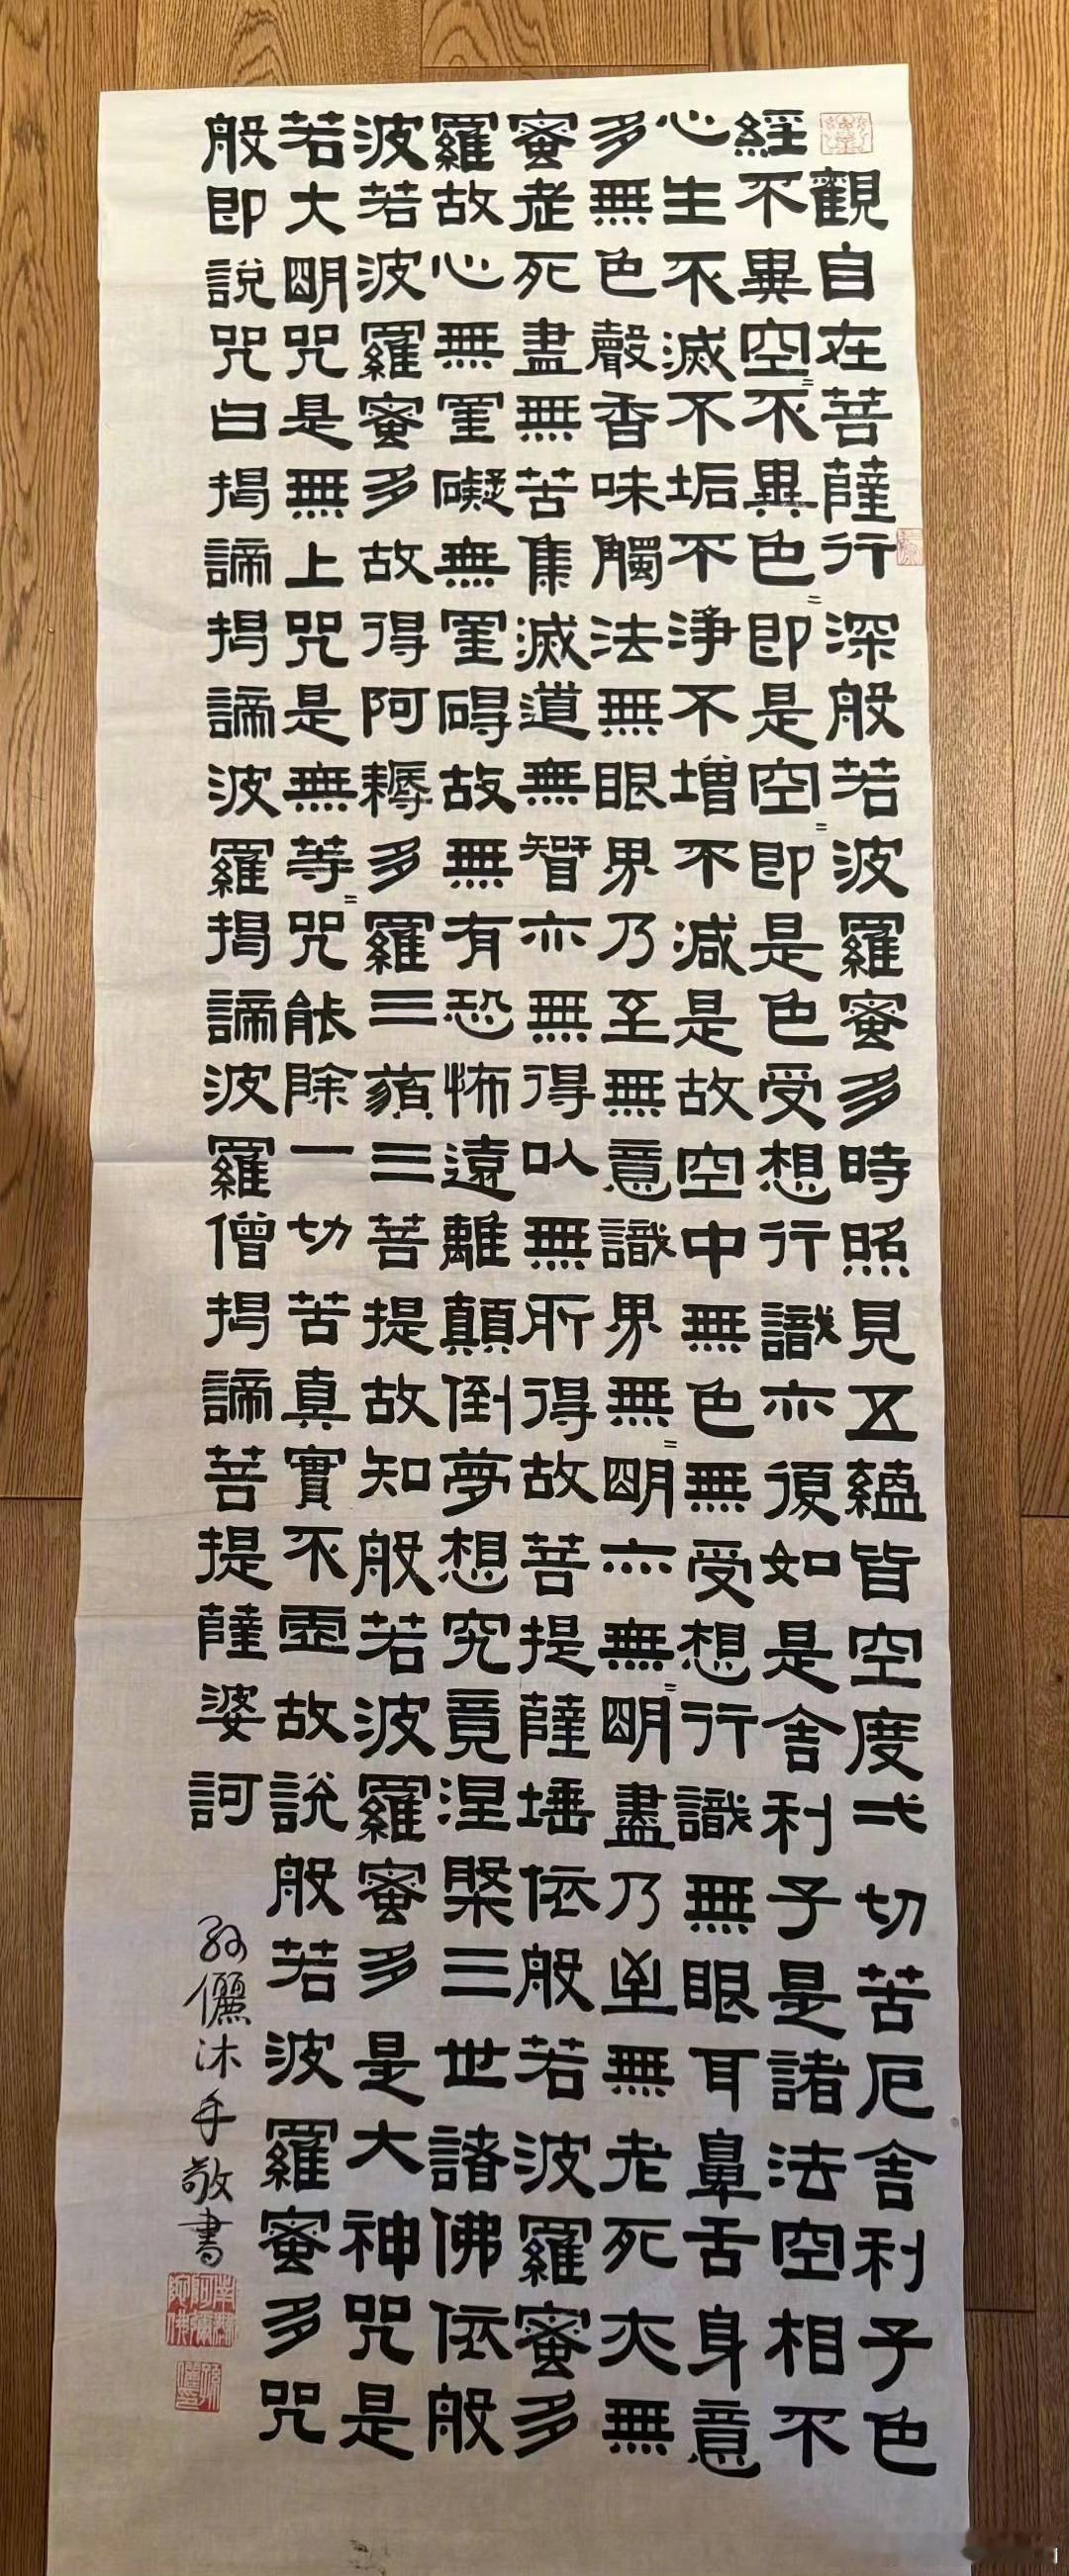 般若波羅蜜多心經
觀自在菩薩行深般若波羅蜜多時照見五蘊皆空度弌切苦厄舍利子色
不異空〻不異色〻即是空〻即是色受想行識亦復如是舍利子是諸法空相不
生不滅不垢不淨不增不減是故空中無色無受想行識無眼耳鼻舌身意
無色聲香味觸法無眼界乃至無意識界無〻明亦無〻明盡乃至無老死亦無
老死盡無苦集滅道無智亦無得以無所得故菩提薩埵依般若波羅蜜多
故心無罣礙無罣碍故無有恐怖遠離顛倒夢想究竟涅槃三世諸佛依般
若波羅蜜多故得阿耨多羅三藐三菩提故知般若波羅蜜多是大神咒是
大明咒是無上咒是無等〻咒能除一切苦真實不虛故說般若波羅蜜多咒
即說咒曰揭諦揭諦波羅揭諦波羅僧揭諦菩提薩婆訶
孙儷沐手敬書
南無阿彌陀佛